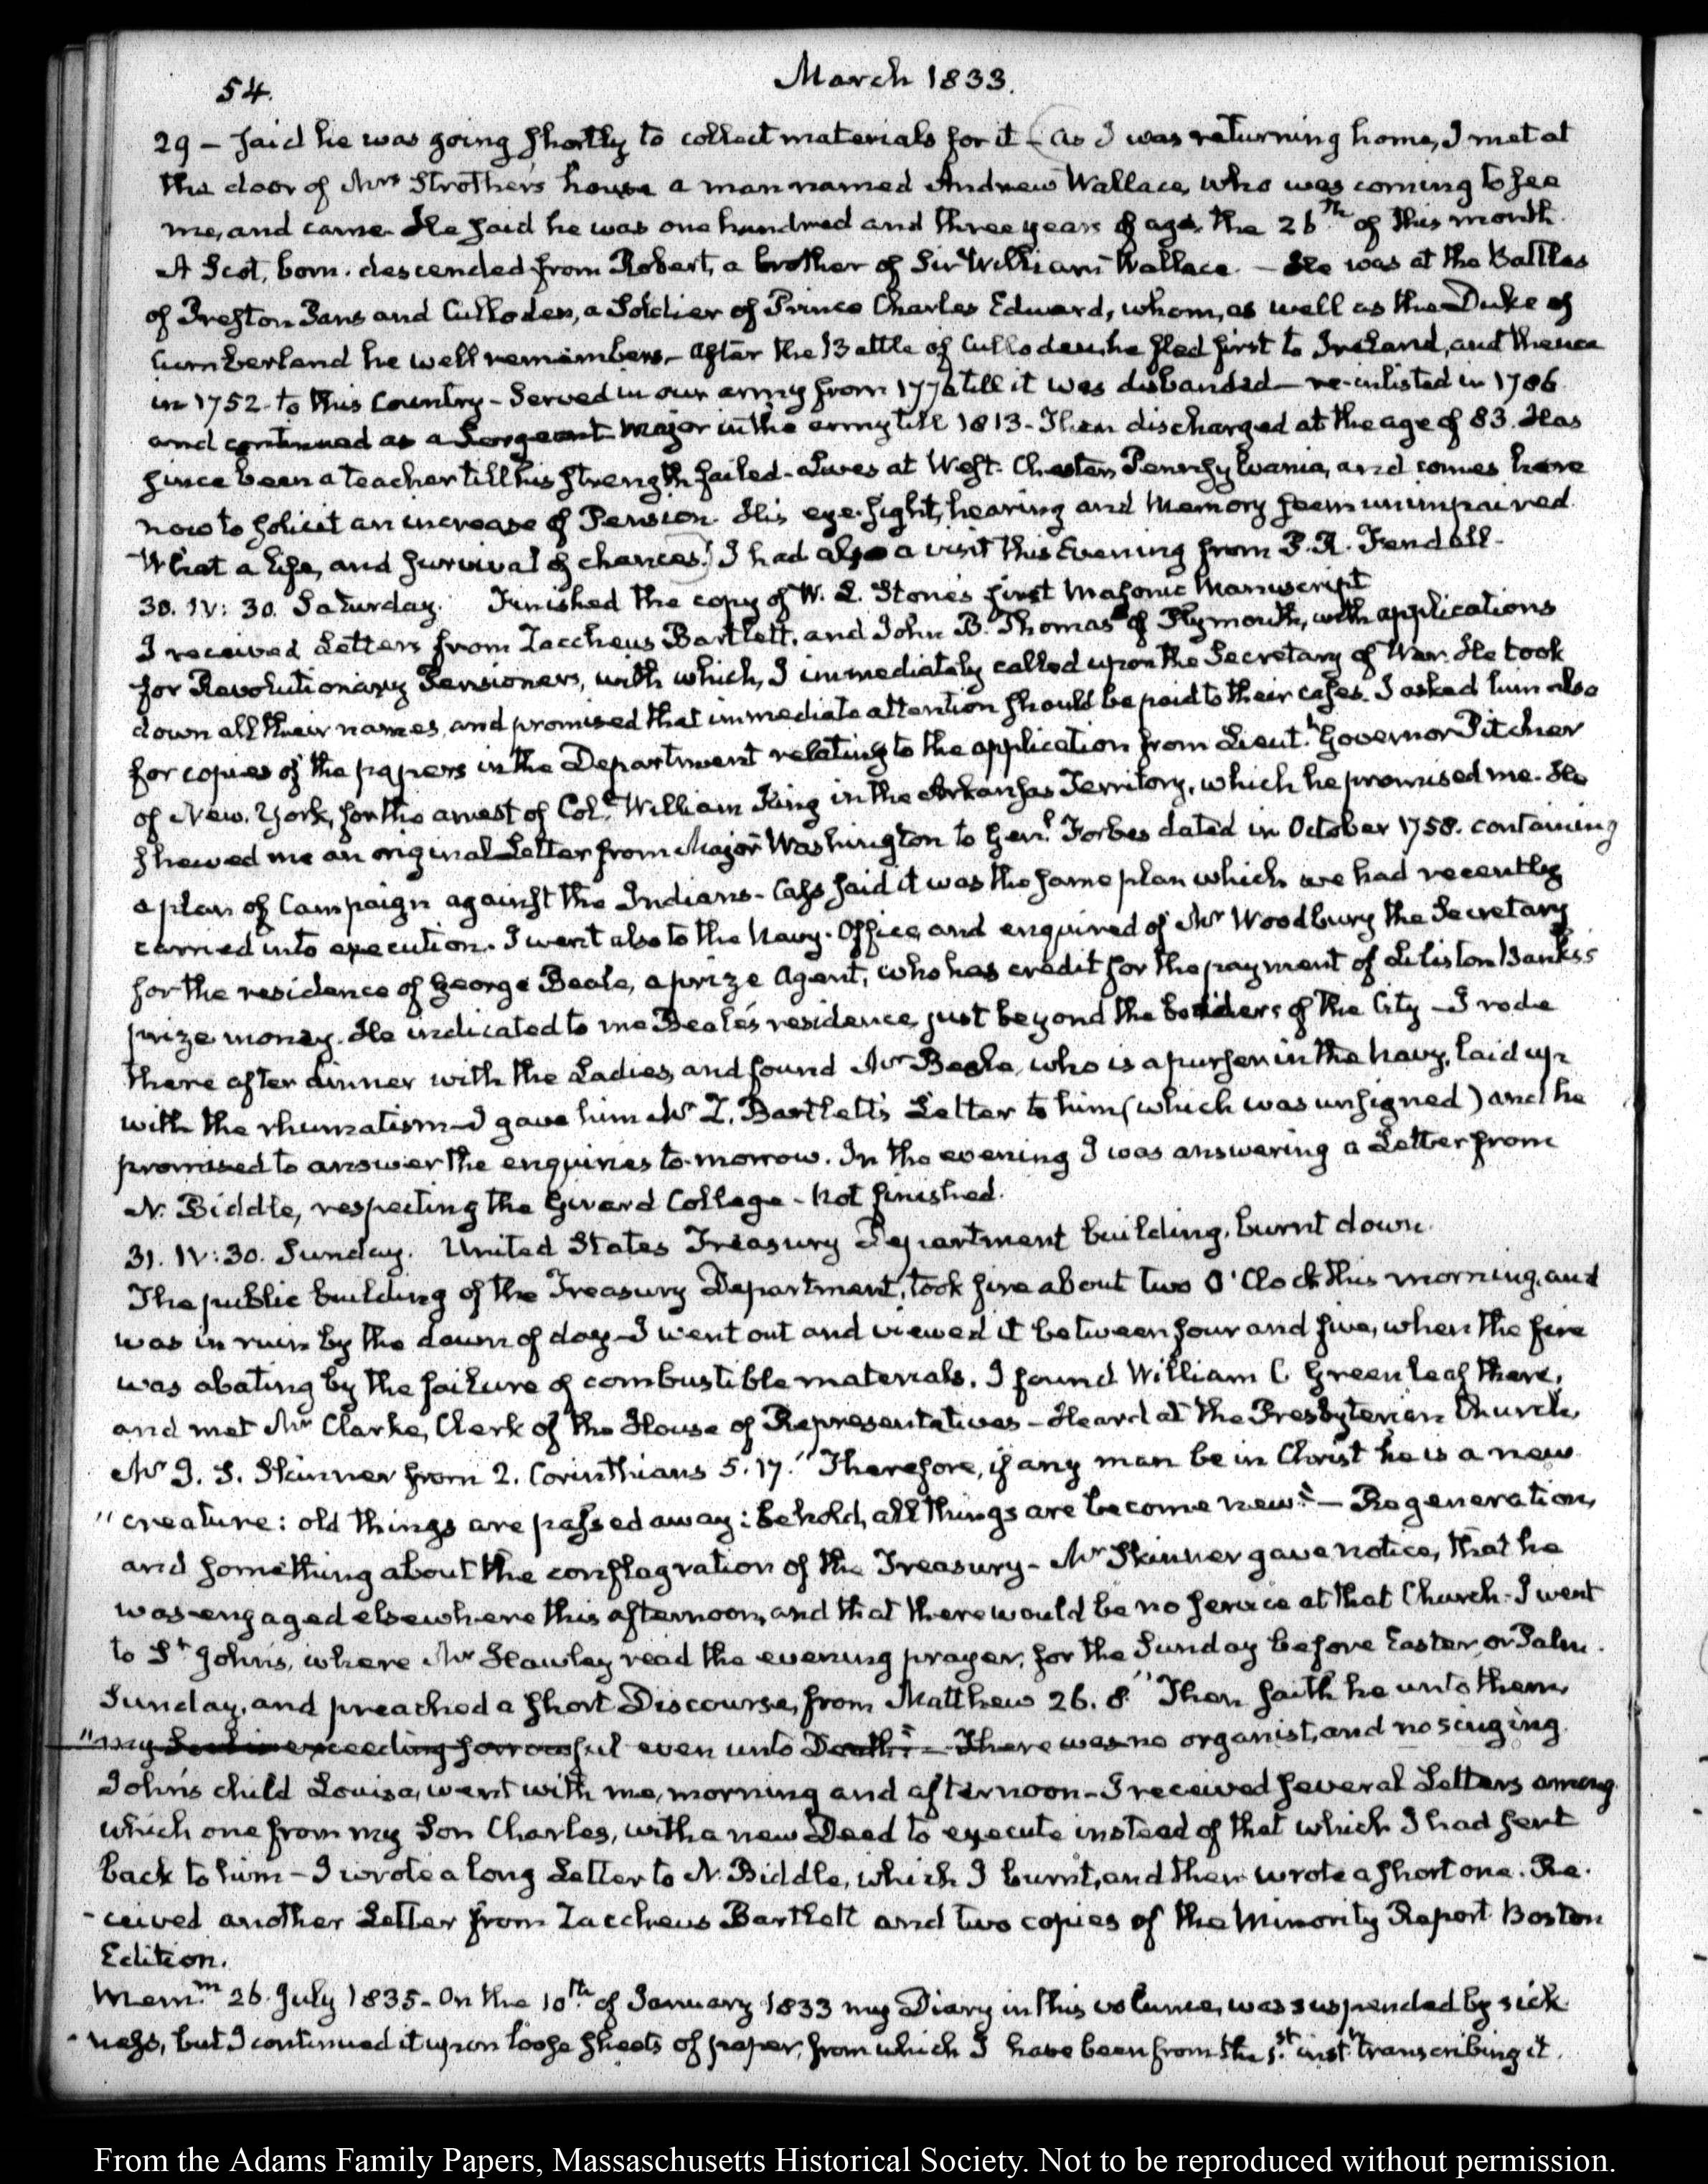 54.
March 1833.
29 – said he was going shortly to collect materials for it – (as I was returning home, I met at
the door of Mrs Strother's house a man named Andrew Wallace, who was coming to see
me, and came. He said he was one hundred and three years of age, the 26th of this month.
A Scot, born. descended from Robert, a brother of Sir William Wallace. – He was at the Battles
of Preston Pans and Culloden, a Soldier of Prince Charles Edward, whom, as well as the Duke of
Cumberland he well remembers – After the Battle of Culloden, he fled first to Ireland, and thence
in 1752. to this Country – Served in our army from 1776 till it was disbanded – re-inlisted in 1786
and continued as a Sergeant Major in the army till 1813 – Then discharged at the age of 83. Has
since been a teacher till his strength failed – Lives at West-Chester, Pennsylvania, and comes here
now to solicit an increase of Pension. His eye-sight, hearing and Memory seem unimpaired.
– What a life, and survival of chances!) I had also a visit this Evening from P. R. Fendall –
30. IV: 30. Saturday. Finished the copy of W. L. Stone's first Masonic Manuscript
I received Letters from Zaccheus Bartlett, and John B. Thomas of Plymouth, with applications
for Revolutionary Pensioners, with which, I immediately called upon the Secretary of War. He took
down all their names, and promised that immediate attention should be paid to their cases. I asked him also
for copies of the papers in the Department relating to the application from Lieutt Governor Pitcher
of New-York, for the arrest of Col. William King in the Arkansas Territory, which he promised me. He
shewed me an original Letter from Major Washington to Genl Forbes dated in October 1758. containing
a plan of Campaign against the Indians – Cass said it was the same plan which we had recently
carried into execution. I went also to the Navy-Office, and enquired of Mr Woodbury the Secretary
for the residence of George Beale, a prize Agent, who has credit for the payment of Liliston Banks's
prize money. He indicated to me Beale's residence, just beyond the borders of the City – I rode
there after dinner with the Ladies, and found Mr Beale, who is a purser in the Navy, laid up
with the rhumatism – I gave him Mr Z. Bartlett's Letter to him (which was unsigned) and he
promised to answer the enquiries to-morrow. In the evening I was answering a Letter from
N. Biddle, respecting the Girard College – Not finished.
31. IV: 30. Sunday. United States Treasury Department building, burnt down.
The public building of the Treasury Department, took fire about two O'Clock this morning, and
was in ruin by the dawn of day – I went out and viewed it between four and five, when the fire
was abating by the failure of combustible materials. I found William C. Greenleaf there,
and met Mr Clarke, Clerk of the House of Representatives – Heard at the Presbyterian Church,
Mr I. S. Skinner from 2. Corinthians 5. 17. "Therefore, if any man be in Christ he is a new
"creature: old things are passed away: behold, all things are become new" – Regeneration,
and something about the conflagration of the Treasury – Mr Skinner gave notice, that he
was engaged elsewhere this afternoon, and that there would be no service at that Church – I went
to St John's, where Mr Hawley read the evening prayer, for the Sunday before Easter, or Palm
Sunday, and preached a short Discourse, from Matthew 26. 8. "Then saith he unto them,
"my Soul is exceeding sorrowful even unto Death" – There was no organist, and no singing.
John's child Louisa, went with me, morning and afternoon – I received several Letters among
which one from my Son Charles, with a new Deed to execute instead of that which I had sent
back to him – I wrote a long Letter to N. Biddle, which I burnt, and then wrote a short one. Re-
-ceived another Letter from Zaccheus Bartlett and two copies of the Minority Report Boston
Edition.
Memm 26. July 1835 – On the 10th of January 1833 my Diary in this volume, was suspended by sick-
-ness, but I continued it upon loose sheets of paper, from which I have been from the 1st instt transcribing it.
From the Adams Family Papers, Massachusetts Historical Society. Not to be reproduced without permission.